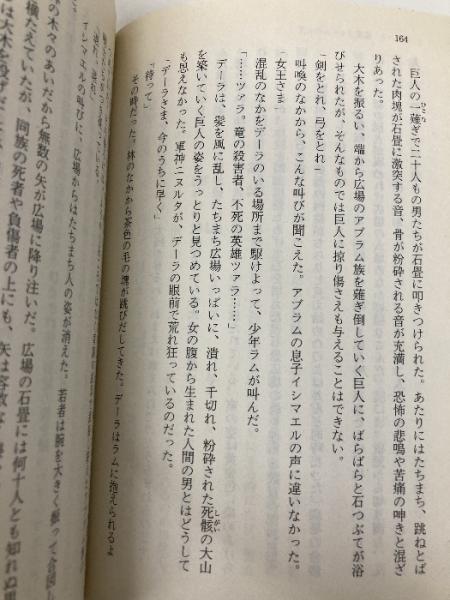 164
巨人の一薙ぎで二十人もの男たちが石畳に叩きつけられた。あたりにはたちまち、跳ねとば
された肉塊が石畳に激突する音、骨が粉砕される音が充満し、恐怖の悲鳴や苦痛の呻きと混ざ
りあった。
大木を振るい、端から広場のアブラム族を薙ぎ倒していく巨人に、ばらばらと石つぶてが浴
びせられたが、そんなものでは巨人に掠り傷さえも与えることはできない。
「剣をとれ、弓をとれ」
叫喚のなかから、こんな叫びが聞こえた。アブラムの息子イシマエルの声に違いなかった。
「女王さま」
混乱のなかをデーラのいる場所まで駆けよって、少年ラムが叫んだ。
「……ツァラ。竜の殺害者、不死の英雄ツァラ……」
デーラは、髪を風に乱し、たちまち広場いっぱいに、潰れ、千切れ、粉砕された死骸の大山
を築いていく巨人の姿をうっとりと見つめている。女の腹から生まれた人間の男とはどうして
も思えなかった。軍神ニヌルタが、デーラの眼前で荒れ狂っているのだった。
「デーラさま、今のうちに早く」
「待って」
その時だった。林のなかから茶色の毛の塊が跳びだしてきた。デーラはラムに抱えられるよ
イシマエルの叫びに、広場からはたちまち人の姿が消えた。若者は腕を大きく振って合図し
の木々のあいだから無数の矢が広場に降り注いだ。広場の石畳には何十人とも知れぬ男
横たえていたが、同族の死者や負傷者の上にも、矢は容赦な